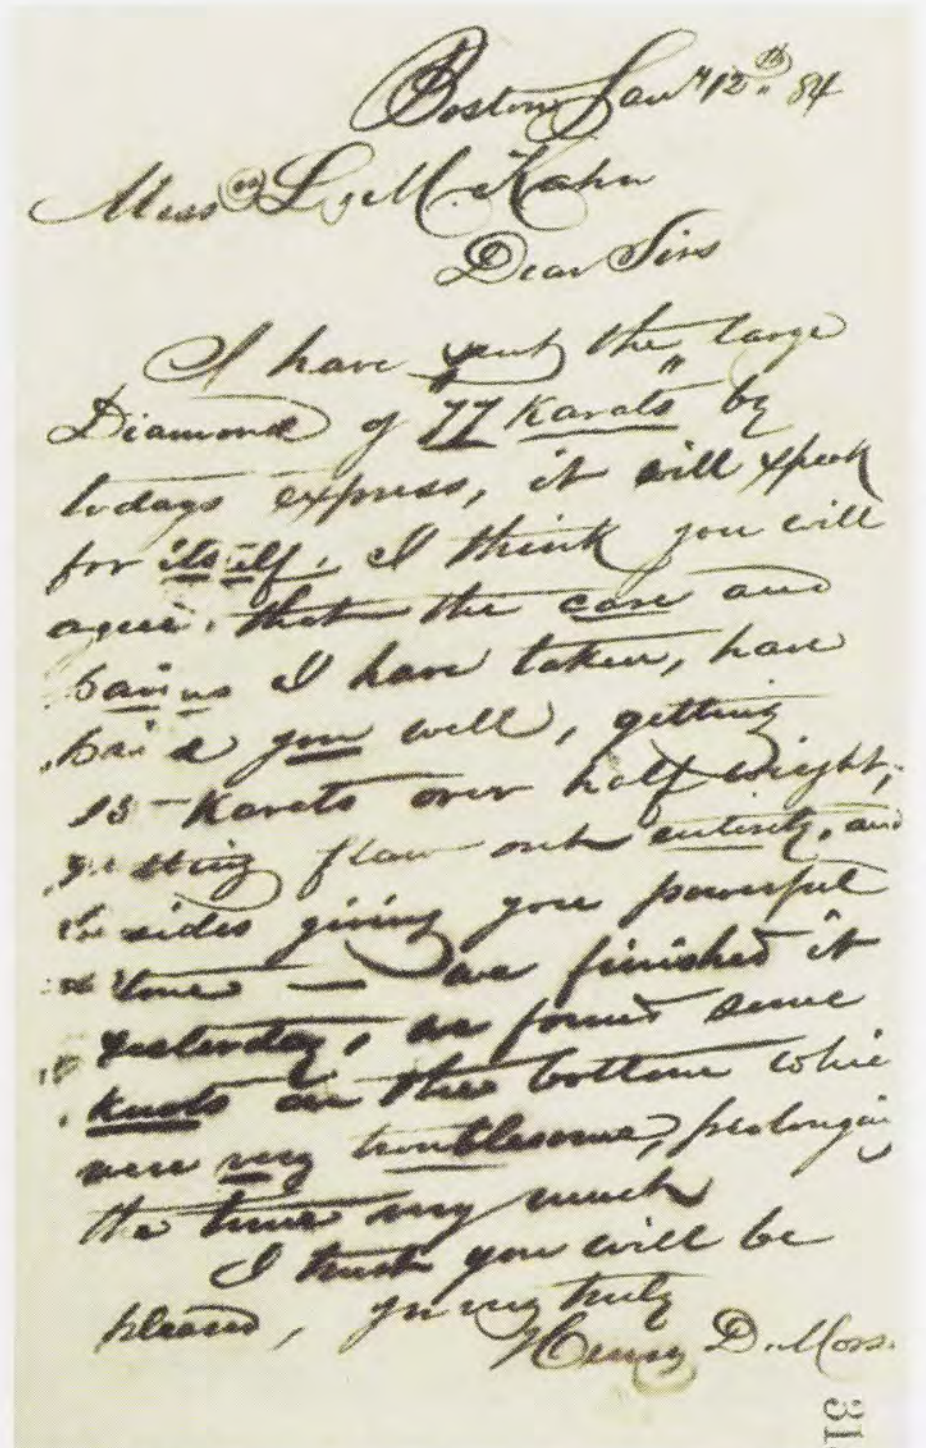 Boston Jany 12th 84
Messrs L & M. Kahn
Dear Sirs
I have sent the large
Diamond of "77 Karats" by
todays express, it will speak
for itself. I think you will
agree that the care and
pains I have taken, have
paid you well, getting
15 - Karats over half weight,
getting flaw out entirely, and
besides giving you powerful
stone — we finished it
yesterday, we found some
knots on the bottom which
were very troublesome, prolonging
the time very much
I trust you will be
pleased, Yr very truly
Henry D. Morse